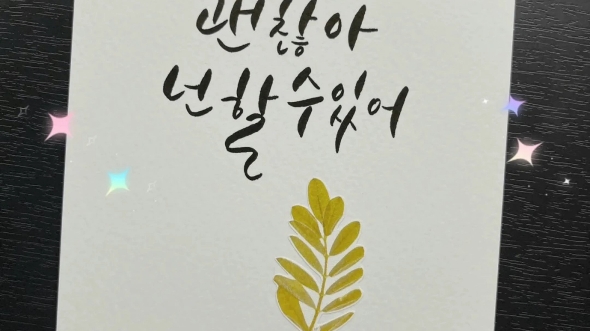 괜찮아
넌 할 수 있어